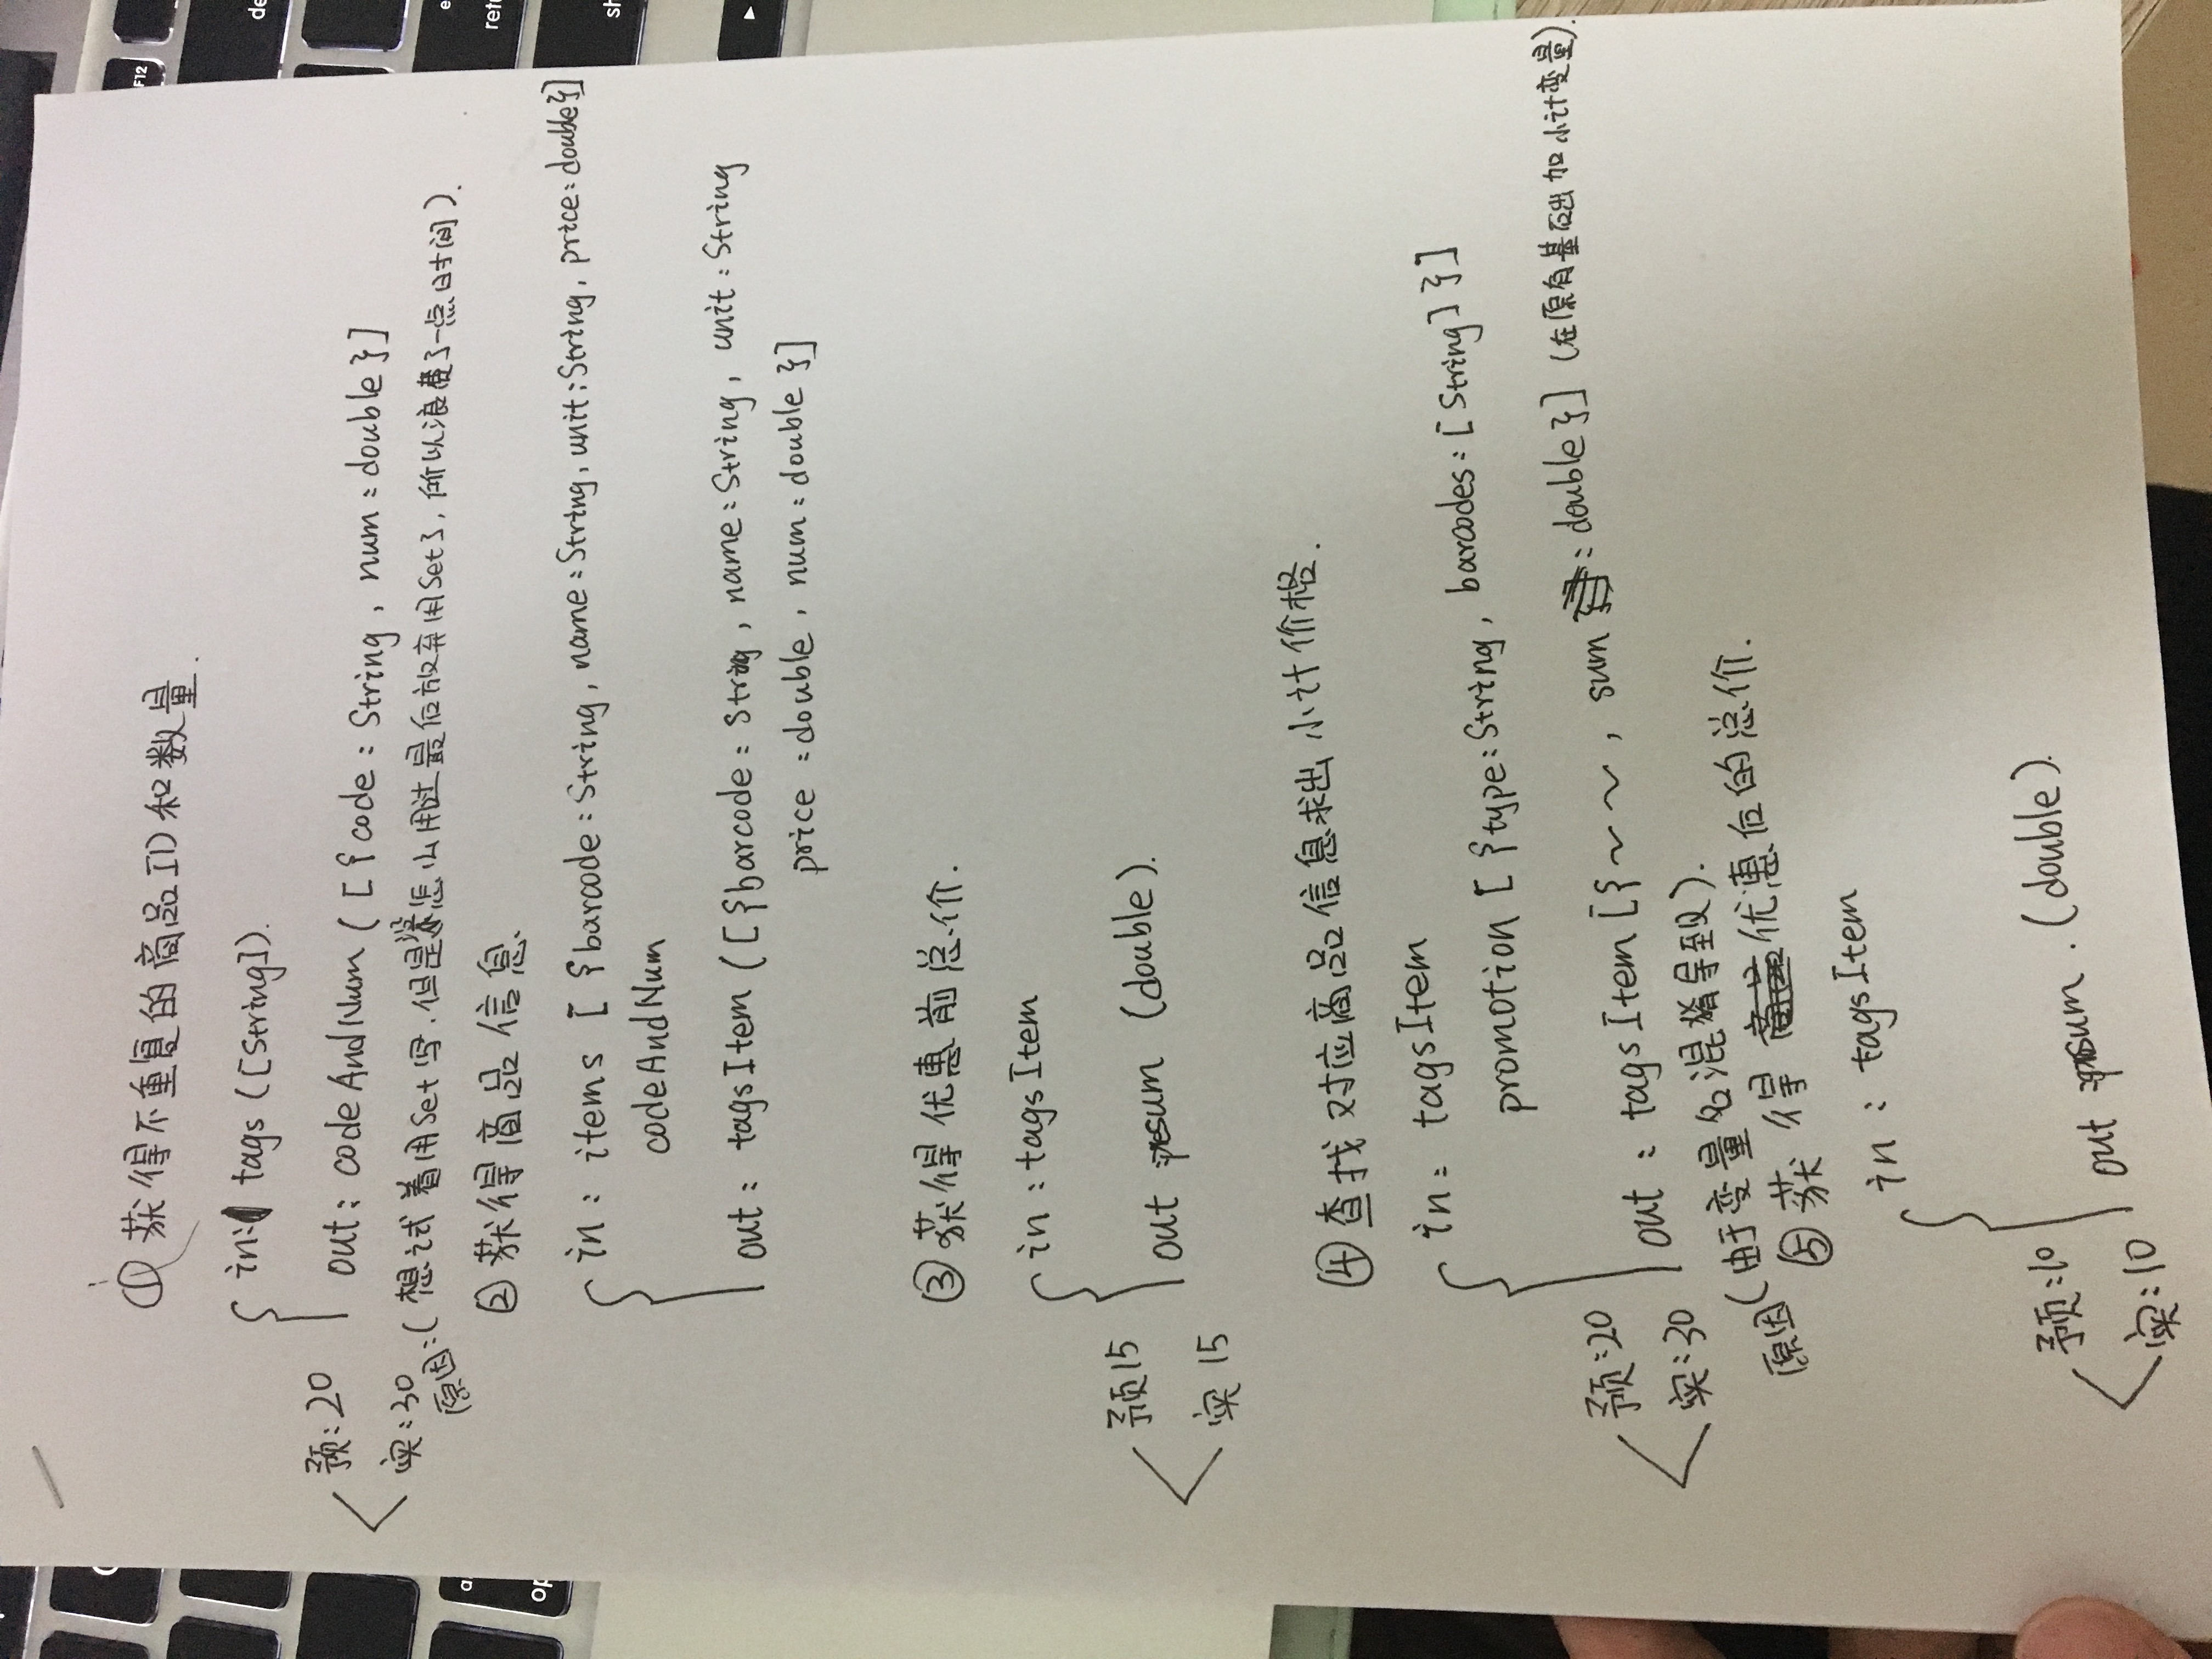 ① 获得不重复的商品ID和数量.
in: tags ([String]).
预:20
out: codeAndNum ([{code: String, num: double}]
实:30
原因:(想试着用Set写.但是没怎么用过最后放弃用Set了,所以浪费了一点时间).
② 获得商品信息
in: items [{barcode: String, name: String, unit: String, price: double}]
codeAndNum
out: tagsItem ([{barcode: String, name: String, unit: String
price: double, num: double}]
③ 获得优惠前总价.
in: tagsItem
预15
out: sum (double).
实 15
④ 查找对应商品信息求出小计价格.
in: tagsItem
promotion [{type: String, barcodes: [String]}]
预:20
out: tagsItem [{~~, sum: double}] (在原有基础出加小计变量).
实:30
原因(由于变量名混淆导致).
⑤ 获得优惠后的总价.
in: tagsItem
预:10
out: sum. (double).
实:10
F12